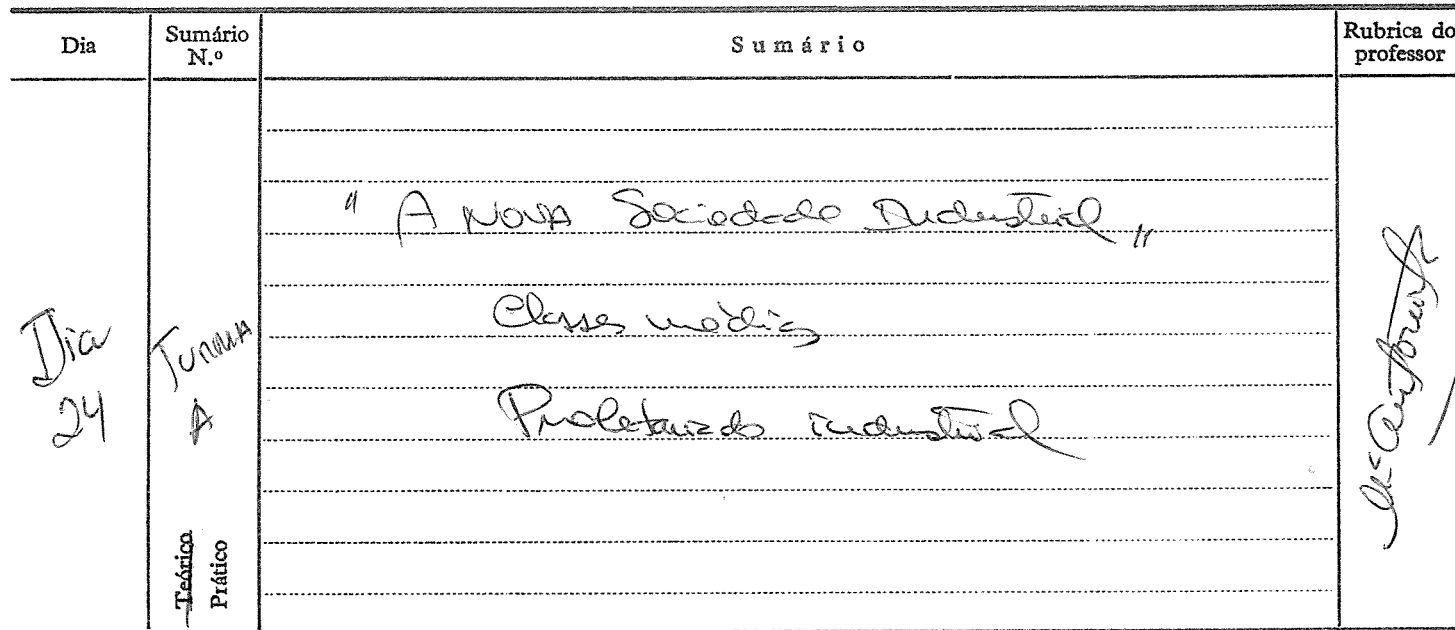 Dia
Sumário
N.º
Sumário
Rubrica do
professor
Dia
24
TURMA
A
Teórico
Prático
" A NOVA Sociedade Industrial "
Classes médias
Proletariado industrial